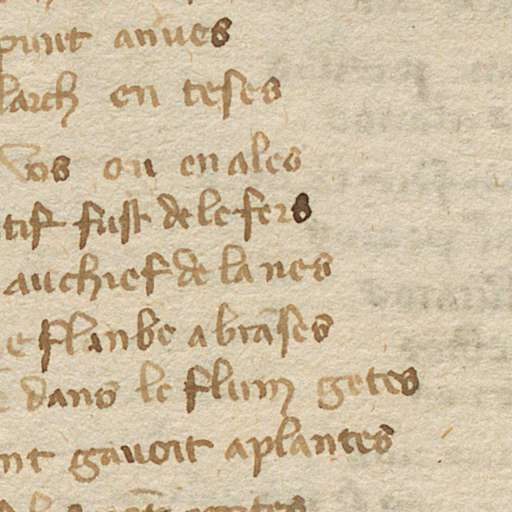 punt anues
larch en teses
vos ou en ales
tif fust de le fers
au chief de la nes
e flanbe abrases
dans le flum getes
nt gauoit aplantes